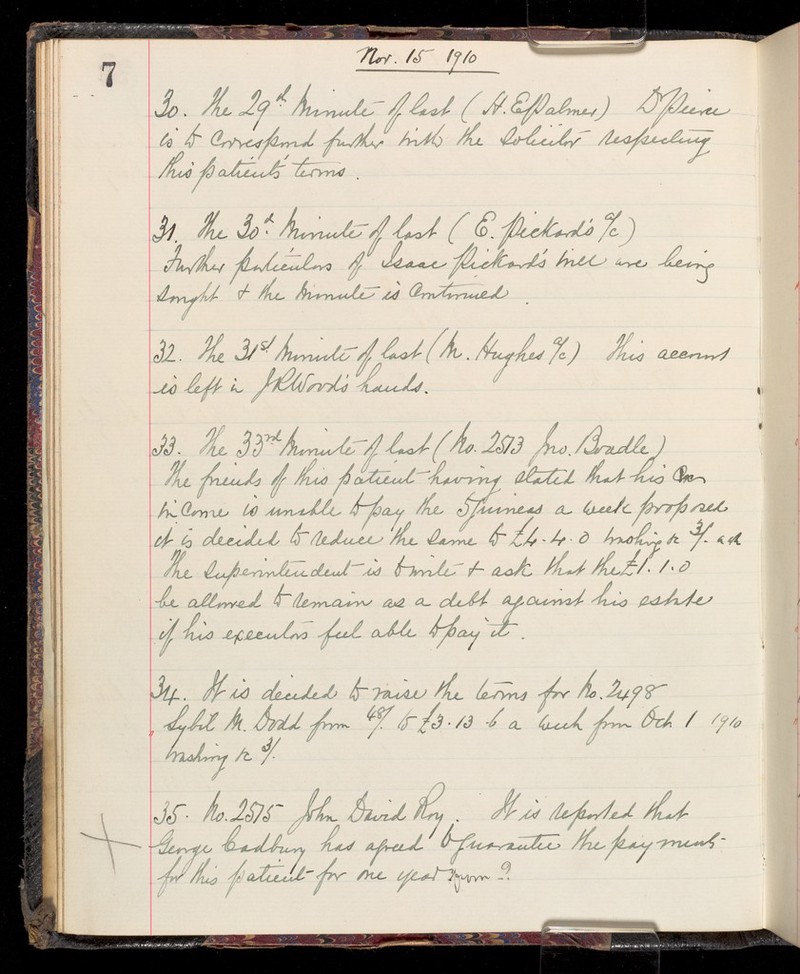 7
Nov. 15 1910
30. The 29th Minute of last (H. E. Palmer) Dr Pierce
is to correspond further with the Solicitor respecting
this patient's terms.
31. The 30th Minute of last (E. Pickard's a/c)
Further particulars of Isaac Pickard's will are being
sought & the Minute is continued.
32. The 31st Minute of last (M. Hughes a/c) This account
is left in J R Wood's hands.
33. The 33rd Minute of last (No. 2573 Jno. Boadle)
The friends of this patient having stated that his
income is unable to pay the 5 guineas a week proposed
it is decided to reduce the same to £4.4.0 washing &c 3/-
The Superintendent is to write & ask that the £1.1.0
be allowed to remain as a debt against his estate
if his executors feel able to pay it.
34. It is decided to raise the terms for No. 2498
Sybil M. Dodd from 48/- to £3.13.6 a week from Oct. 1 1910
washing &c 3/-
35. No. 2575 John David Roy. It is reported that
George Cadbury has agreed to guarantee the payments
for this patient for one year from ?